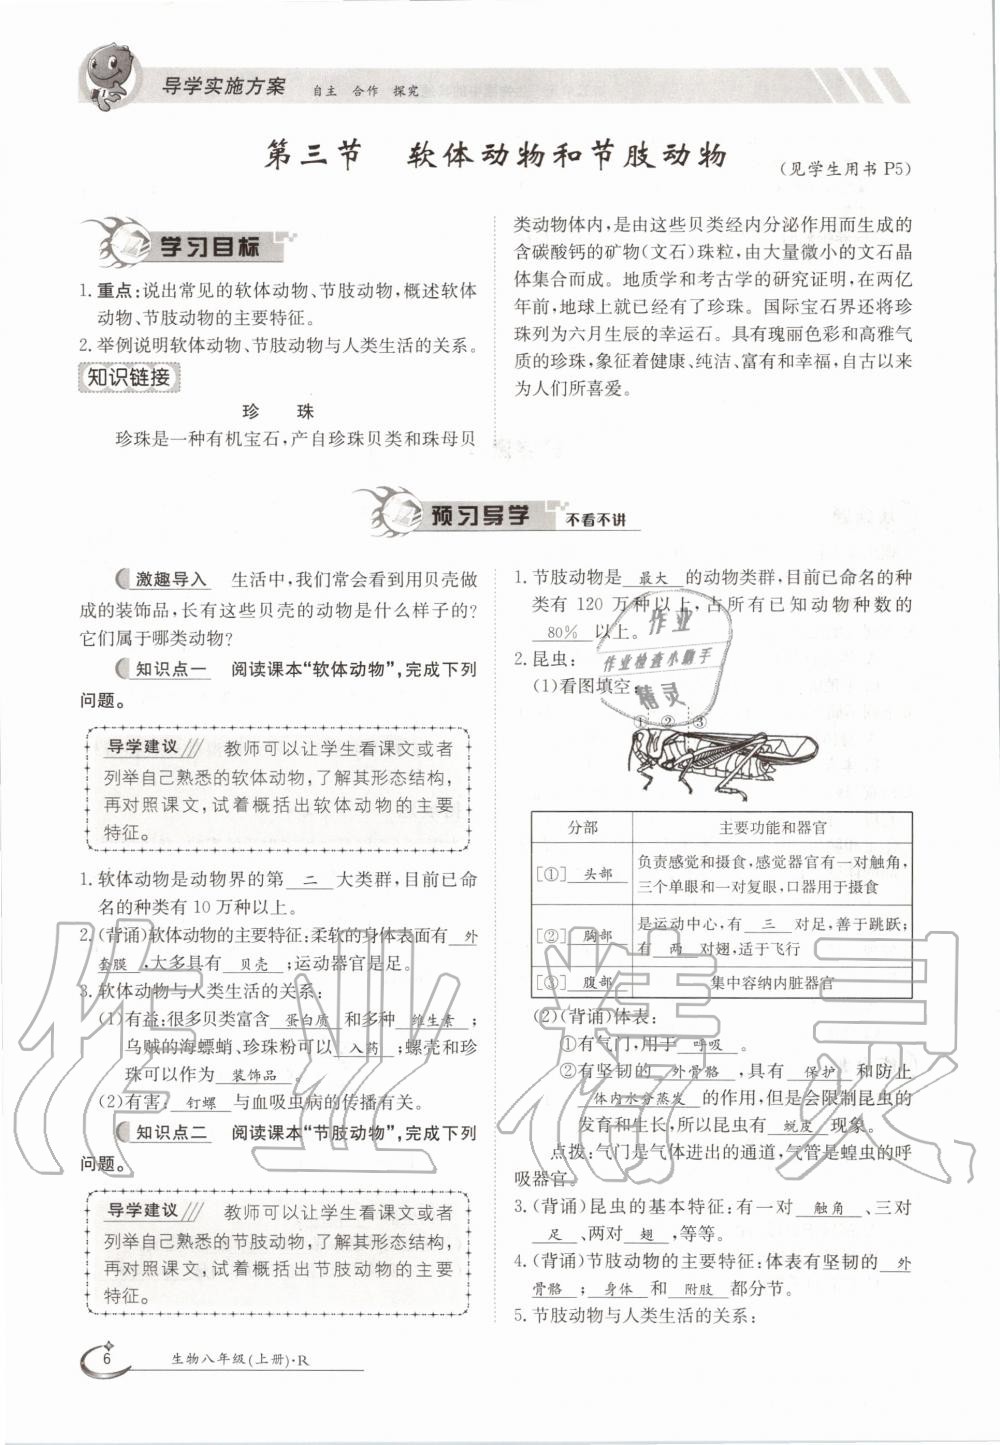 导学实施方案 自主 合作 探究
第三节 软体动物和节肢动物 (见学生用书 P5)
学习目标
1. 重点:说出常见的软体动物、节肢动物,概述软体
动物、节肢动物的主要特征。
2. 举例说明软体动物、节肢动物与人类生活的关系。
知识链接
珍 珠
珍珠是一种有机宝石,产自珍珠贝类和珠母贝
类动物体内,是由这些贝类经内分泌作用而生成的
含碳酸钙的矿物(文石)珠粒,由大量微小的文石晶
体集合而成。地质学和考古学的研究证明,在两亿
年前,地球上就已经有了珍珠。国际宝石界还将珍
珠列为六月生辰的幸运石。具有瑰丽色彩和高雅气
质的珍珠,象征着健康、纯洁、富有和幸福,自古以来
为人们所喜爱。
预习导学 不看不讲
激趣导入 生活中,我们常会看到用贝壳做
成的装饰品,长有这些贝壳的动物是什么样子的?
它们属于哪类动物?
知识点一 阅读课本“软体动物”,完成下列
问题。
导学建议 教师可以让学生看课文或者
列举自己熟悉的软体动物,了解其形态结构,
再对照课文,试着概括出软体动物的主要
特征。
1. 软体动物是动物界的第 二 大类群,目前已命
名的种类有 10 万种以上。
2. (背诵)软体动物的主要特征:柔软的身体表面有 外
套膜 ,大多具有 贝壳 ;运动器官是足。
3. 软体动物与人类生活的关系:
(1)有益:很多贝类富含 蛋白质 和多种 维生素 ;
乌贼的海螵蛸、珍珠粉可以 入药 ;螺壳和珍
珠可以作为 装饰品 。
(2)有害: 钉螺 与血吸虫病的传播有关。
知识点二 阅读课本“节肢动物”,完成下列
问题。
导学建议 教师可以让学生看课文或者
列举自己熟悉的节肢动物,了解其形态结构,
再对照课文,试着概括出节肢动物的主要
特征。
1. 节肢动物是 最大 的动物类群,目前已命名的种
类有 120 万种以上,占所有已知动物种数的
80% 以上。
2. 昆虫:
(1)看图填空:
① ② ③
分部 主要功能和器官
[①] 头部 负责感觉和摄食,感觉器官有一对触角,
三个单眼和一对复眼,口器用于摄食
[②] 胸部 是运动中心,有 三 对足,善于跳跃;
有 两 对翅,适于飞行
[③] 腹部 集中容纳内脏器官
(2)(背诵)体表:
①有气门,用于 呼吸 。
②有坚韧的 外骨骼 ,具有 保护 和防止
体内水分蒸发 的作用,但是会限制昆虫的
发育和生长,所以昆虫有 蜕皮 现象。
点拨:气门是气体进出的通道,气管是蝗虫的呼
吸器官。
3. (背诵)昆虫的基本特征:有一对 触角 、三对
足 、两对 翅 ,等等。
4. (背诵)节肢动物的主要特征:体表有坚韧的 外
骨骼 ; 身体 和 附肢 都分节。
5. 节肢动物与人类生活的关系:
6 生物八年级(上册)·R
作业
作业检查小助手
精灵
作业精灵